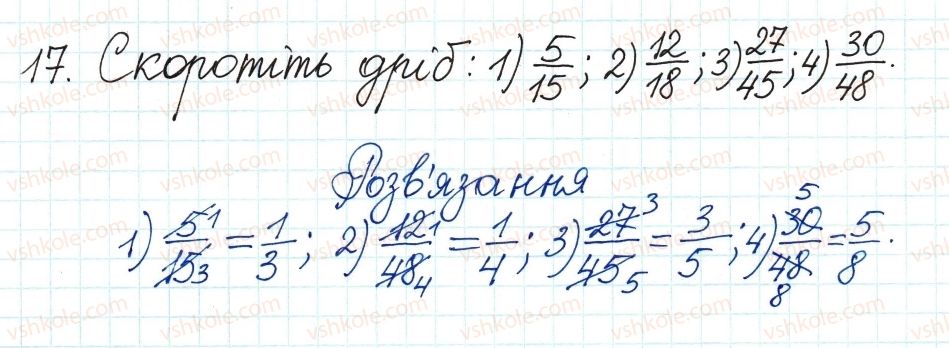 17. Скоротіть дріб: 1) 5/15; 2) 12/18; 3) 27/45; 4) 30/48.
Розв'язання
1) 5 1/15 3 = 1/3; 2) 12 1/48 4 = 1/4; 3) 27 3/45 5 = 3/5; 4) 30 5/48 8 = 5/8.